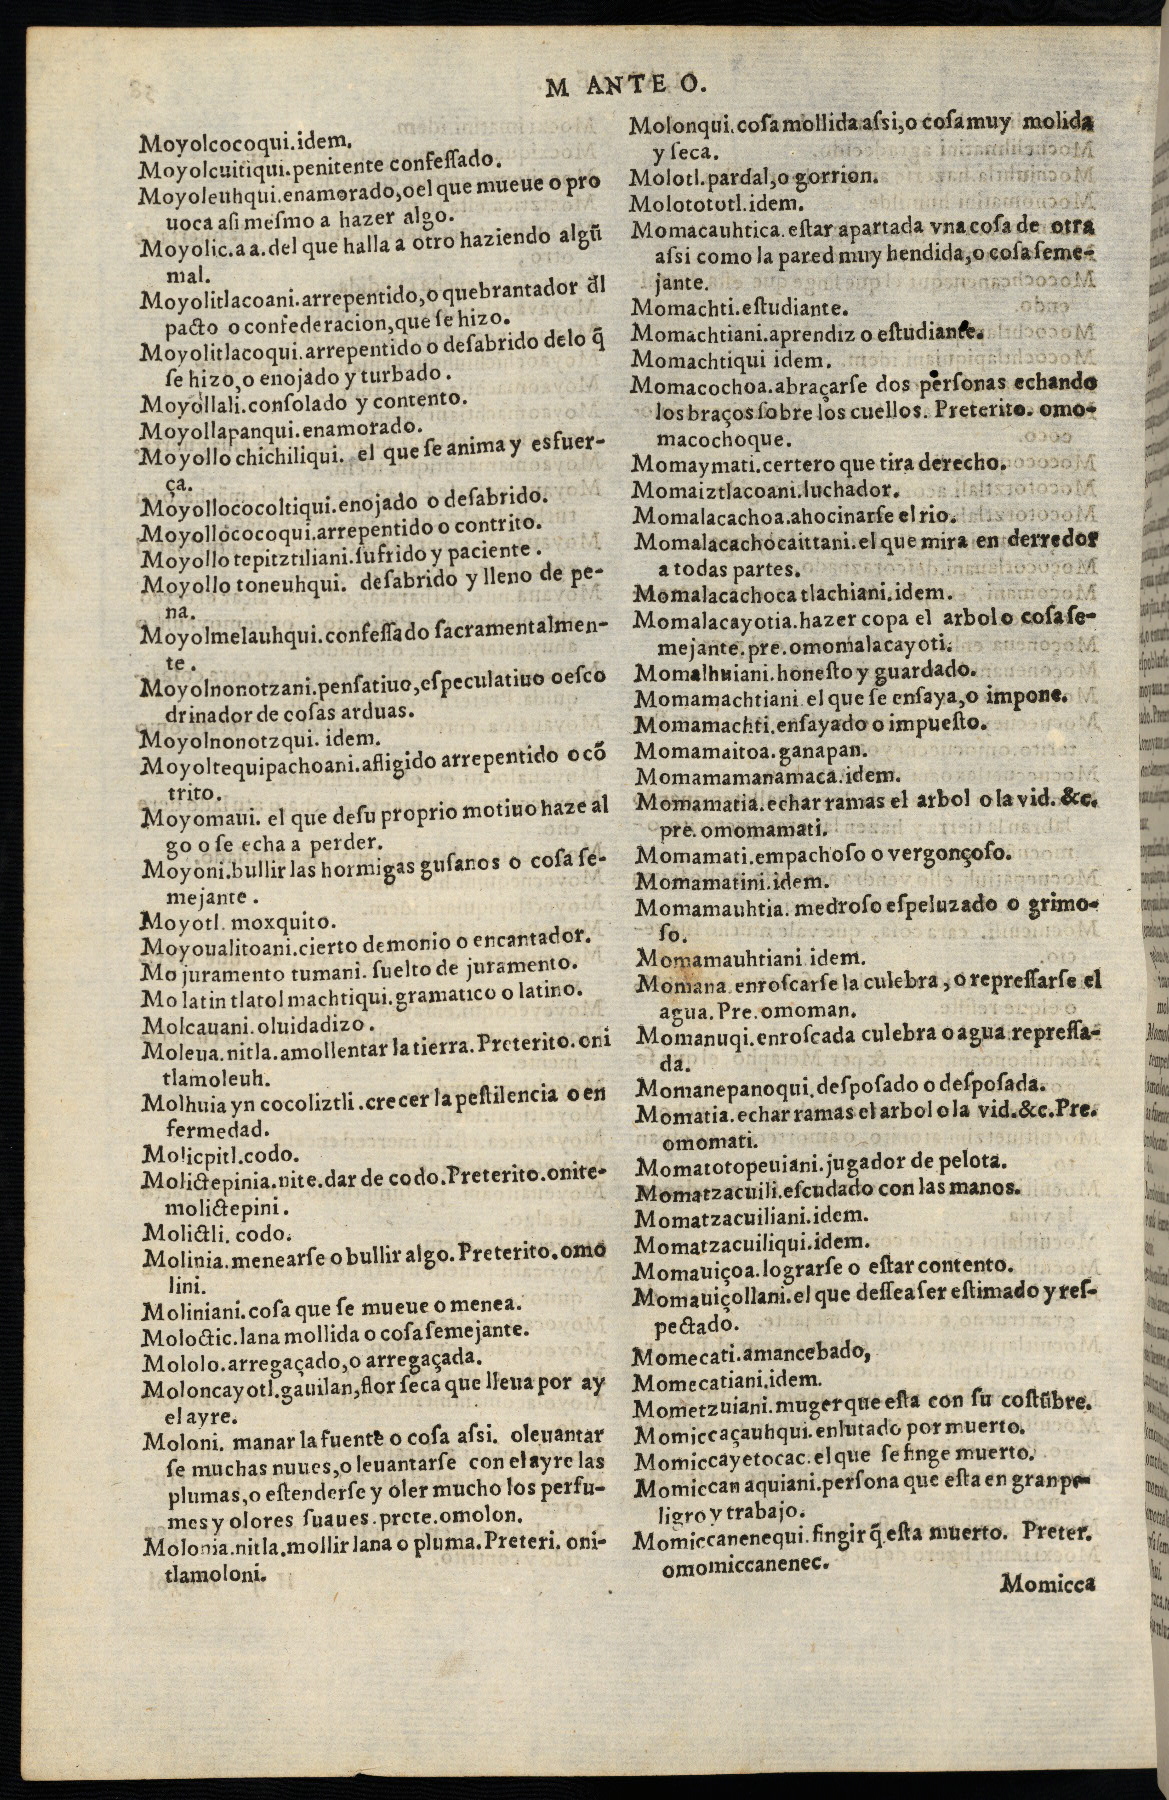 M ANTE O.
Moyolcocoqui.idem.
Moyolcuitiqui.penitente confeſſado.
Moyoleuhqui.enamorado,oel que mueue o pro
uoca aſi meſmo a hazer algo.
Moyolic.a a.del que halla a otro haziendo algũ
mal.
Moyolitlacoani.arrepentido,o quebrantador d̃l
pacto o confederacion,que ſe hizo.
Moyolitlacoqui.arrepentido o deſabrido delo q̃
ſe hizo,o enojado y turbado.
Moyollali.conſolado y contento.
Moyollapanqui.enamorado.
Moyollo chichiliqui. el que ſe anima y esfuer-
ça.
Moyollococoltiqui.enojado o deſabrido.
Moyollococoqui.arrepentido o contrito.
Moyollo tepitztiliani.ſufrido y paciente.
Moyollo toneuhqui. deſabrido y lleno de pe-
na.
Moyolmelauhqui.confeſſado ſacramentalmen-
te.
Moyolnonotzani.penſatiuo,eſpeculatiuo oeſco
drinador de coſas arduas.
Moyolnonotzqui. idem.
Moyoltequipachoani.afligido arrepentido o cõ
trito.
Moyomaui. el que deſu proprio motiuo haze al
go o ſe echa a perder.
Moyoni.bullir las hormigas guſanos o coſa ſe-
mejante.
Moyotl. moxquito.
Moyoualitoani.cierto demonio o encantador.
Mo juramento tumani. ſuelto de juramento.
Mo latin tlatol machtiqui.gramatico o latino.
Molcauani.oluidadizo.
Moleua.nitla.amollentar la tierra.Preterito.oni
tlamoleuh.
Molhuia yn cocoliztli.crecer la peſtilencia o en
fermedad.
Molicpitl.codo.
Molictepinia.nite.dar de codo.Preterito.onite-
molictepini.
Molictli. codo.
Molinia.menearſe o bullir algo.Preterito.omo
lini.
Moliniani.coſa que ſe mueue o menea.
Moloctic.lana mollida o coſa ſemejante.
Mololo.arregaçado,o arregaçada.
Moloncayotl.gauilan,flor ſeca que lleua por ay
el ayre.
Moloni. manar la fuente o coſa aſsi. oleuantar
ſe muchas nuues,o leuantarſe con el ayre las
plumas,o eſtenderſe y oler mucho los perfu-
mes y olores ſuaues.prete.omolon.
Molonia.nitla.mollir lana o pluma.Preteri. oni-
tlamoloni.
Molonqui.coſa mollida aſsi,o coſa muy molida
y ſeca.
Molotl.pardal,o gorrion.
Molotototl.idem.
Momacauhtica.eſtar apartada vna coſa de otra
aſsi como la pared muy hendida,o coſa ſeme-
jante.
Momachti.eſtudiante.
Momachtiani.aprendiz o eſtudiante.
Momachtiqui idem.
Momacochoa.abraçarſe dos perſonas echando
los braços ſobre los cuellos. Preterito. omo-
macochoque.
Momaymati.certero que tira derecho.
Momaiztlacoani.luchador.
Momalacachoa.ahocinarſe el rio.
Momalacachocaittani.el que mira en derredor
a todas partes.
Momalacachoca tlachiani.idem.
Momalacayotia.hazer copa el arbol o coſa ſe-
mejante.pre.omomalacayoti.
Momalhuiani.honeſto y guardado.
Momamachtiani el que ſe enſaya,o impone.
Momamachti.enſayado o impueſto.
Momamaitoa.ganapan.
Momamamanamaca.idem.
Momamatia.echar ramas el arbol o la vid.&c.
pre.omomamati.
Momamati.empachoſo o vergonçoſo.
Momamatini.idem.
Momamauhtia.medroſo eſpeluzado o grimo-
ſo.
Momamauhtiani idem.
Momana enroſcarſe la culebra,o repreſſarſe el
agua.Pre.omoman.
Momanuqi.enroſcada culebra o agua repreſſa-
da.
Momanepanoqui.deſpoſado o deſpoſada.
Momatia.echar ramas el arbol o la vid.&c.Pre.
omomati.
Momatotopeuiani.jugador de pelota.
Momatzacuili.eſcudado con las manos.
Momatzacuiliani.idem.
Momatzacuiliqui.idem.
Momauiçoa.lograrſe o eſtar contento.
Momauiçollani.el que deſſea ſer eſtimado y reſ-
pectado.
Momecati.amancebado,
Momecatiani.idem.
Mometzuiani.muger que eſta con ſu coſtũbre.
Momiccaçauhqui.enlutado por muerto.
Momiccayetocac.el que ſe finge muerto.
Momiccan aquiani.perſona que eſta en gran pe-
ligro y trabajo.
Momiccanenequi.fingir q̃ eſta muerto. Preter.
omomiccanenec.
Momicca